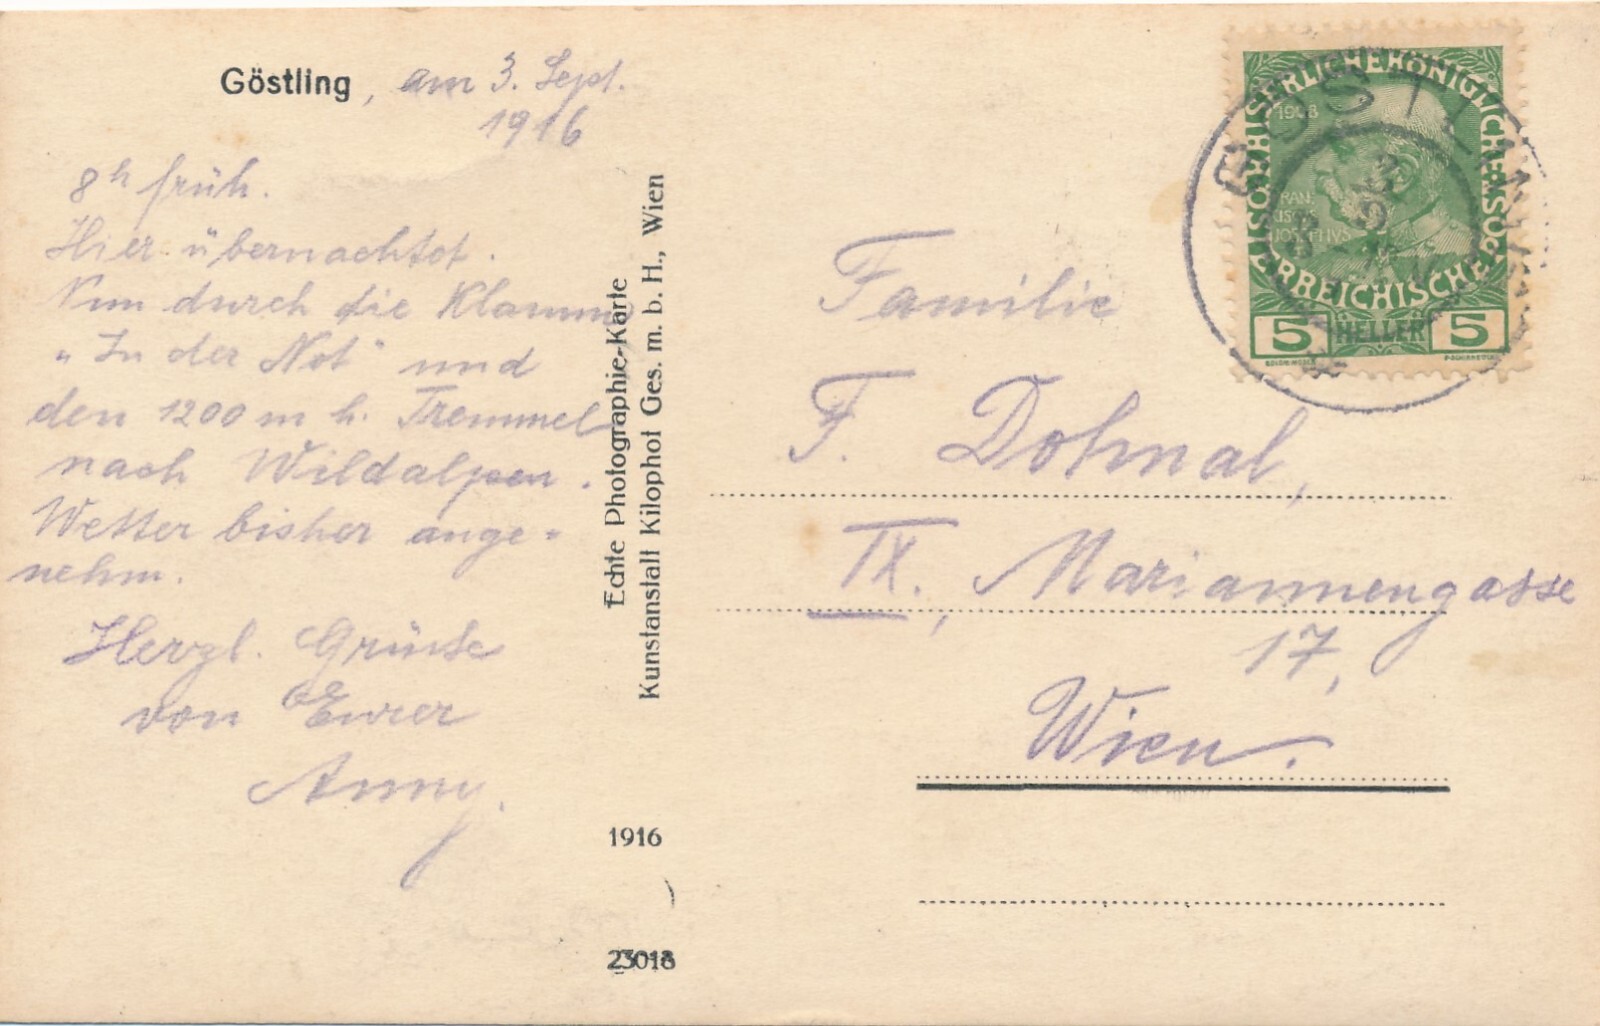 Göstling, am 3. Sept.
1916
8h früh.
Hier übernachtet.
Nun durch die Klamm
„In der Not“ und
den 1200 m h. Tremmel
nach Wildalpen.
Wetter bisher ange-
nehm.
Herzl. Grüße
von Eurer
Anny.
Echte Photographie-Karte
Kunstanstalt Kilophot Ges. m. b. H., Wien
1916
23018
KAISERLICHE KÖNIGLICHE ÖSTERREICHISCHE
1908
FRAN
CISC
JOSEPHVS
5 HELLER 5
Familie
F. Dohnal,
IX., Mariannengasse
17,
Wien.